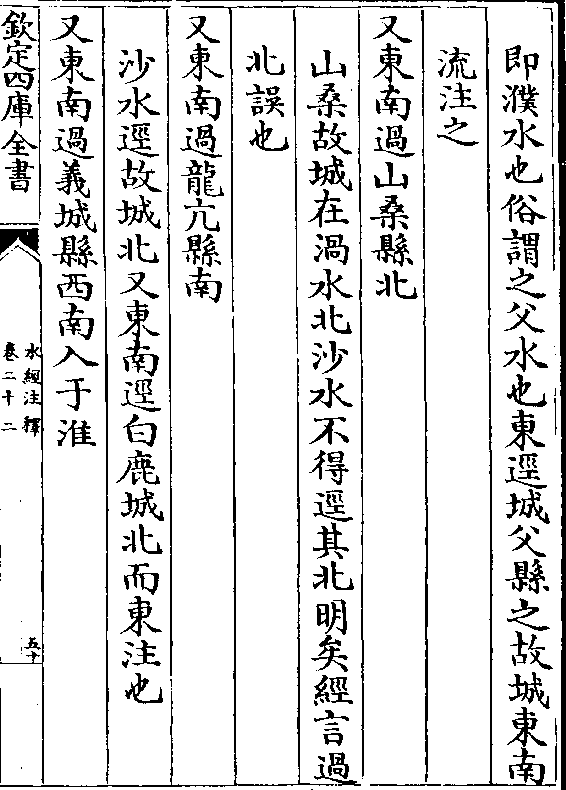 即濮水也俗謂之父水也東逕城父縣之故城東南
流注之
又東南過山桑縣北
山桑故城在渦水北沙水不得逕其北明矣經言過
北誤也
又東南過龍亢縣南
沙水逕故城北又東南逕白鹿城北而東注也
又東南過義城縣西南入于淮
欽定四庫全書
水經注釋
卷二十二
五十